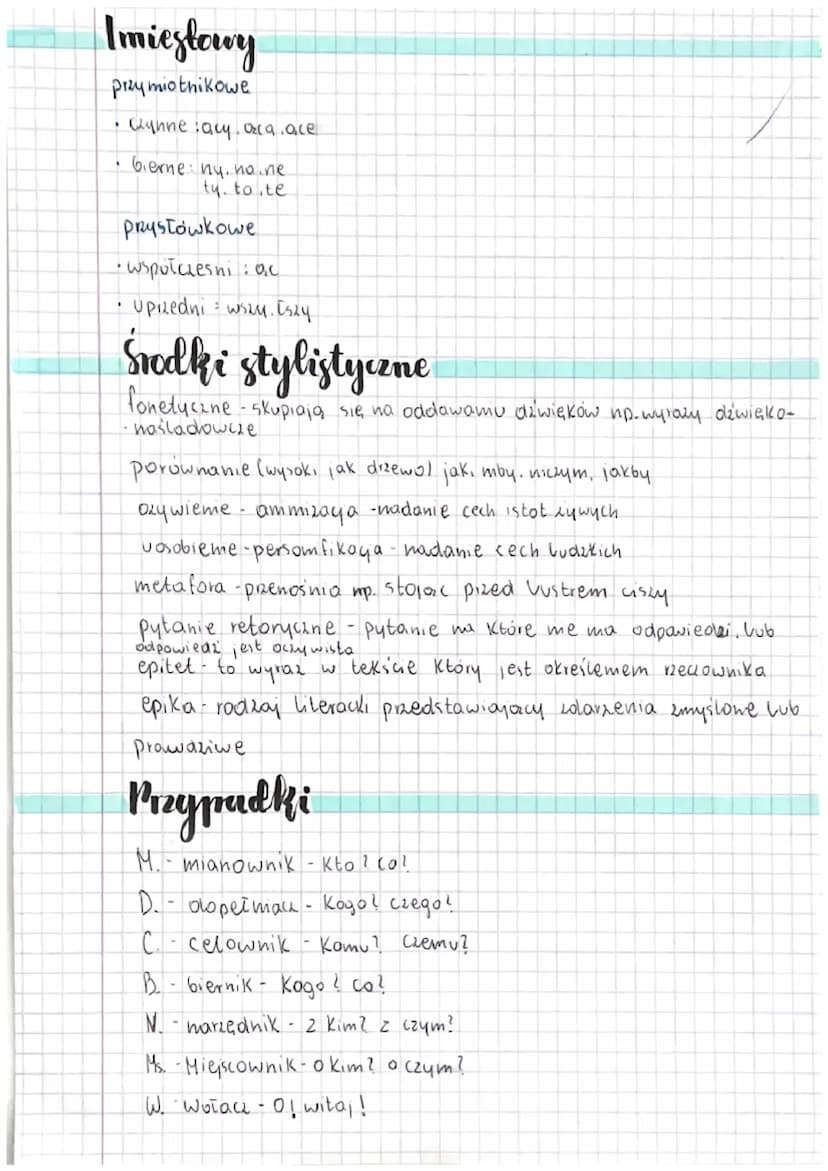 Imiesłowy
przymiotnikowe
· czynne : ący. ąca. ące
· bierne: ny. na. ne
ty. ta. te
przysłówkowe
· współcześni : ąc
· uprzedni : wszy. łszy
Środki stylistyczne
fonetyczne - skupiają się na oddawaniu dźwięków np. wyrazy dźwięko-
- naśladowcze
porównanie (wysoki jak drzewo) jak, niby. niczym, jakby
ożywienie - animizacja - nadanie cech istot żywych
uosobienie - personifikacja - nadanie cech ludzkich
metafora - przenośnia np. stojąc przed lustrem ciszy
pytanie retoryczne - pytanie na które nie ma odpowiedzi, lub
odpowiedź jest oczywista
epitet - to wyraz w tekście który jest określeniem rzeczownika
epika - rodzaj literacki przedstawiający zdarzenia zmyślone lub
prawdziwe
Przypadki
M. - mianownik - Kto? co?
D. - dopełniacz - Kogo? czego?
C. - celownik - Komu? czemu?
B. - biernik - Kogo? co?
N. - narzędnik - z kim? z czym?
Ms. - Miejscownik - o kim? o czym?
W. - Wołacz - O! witaj!